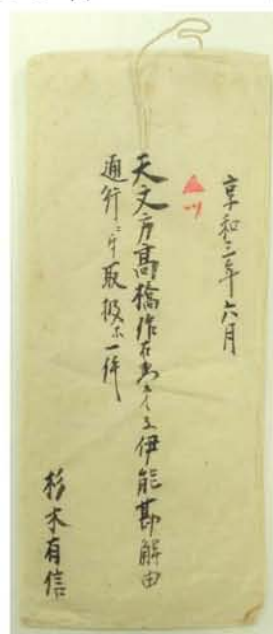 享和三年六月
天文方高橋作左衛門弟子伊能勘解由
通行ニ付取扱方一件
杉木有信